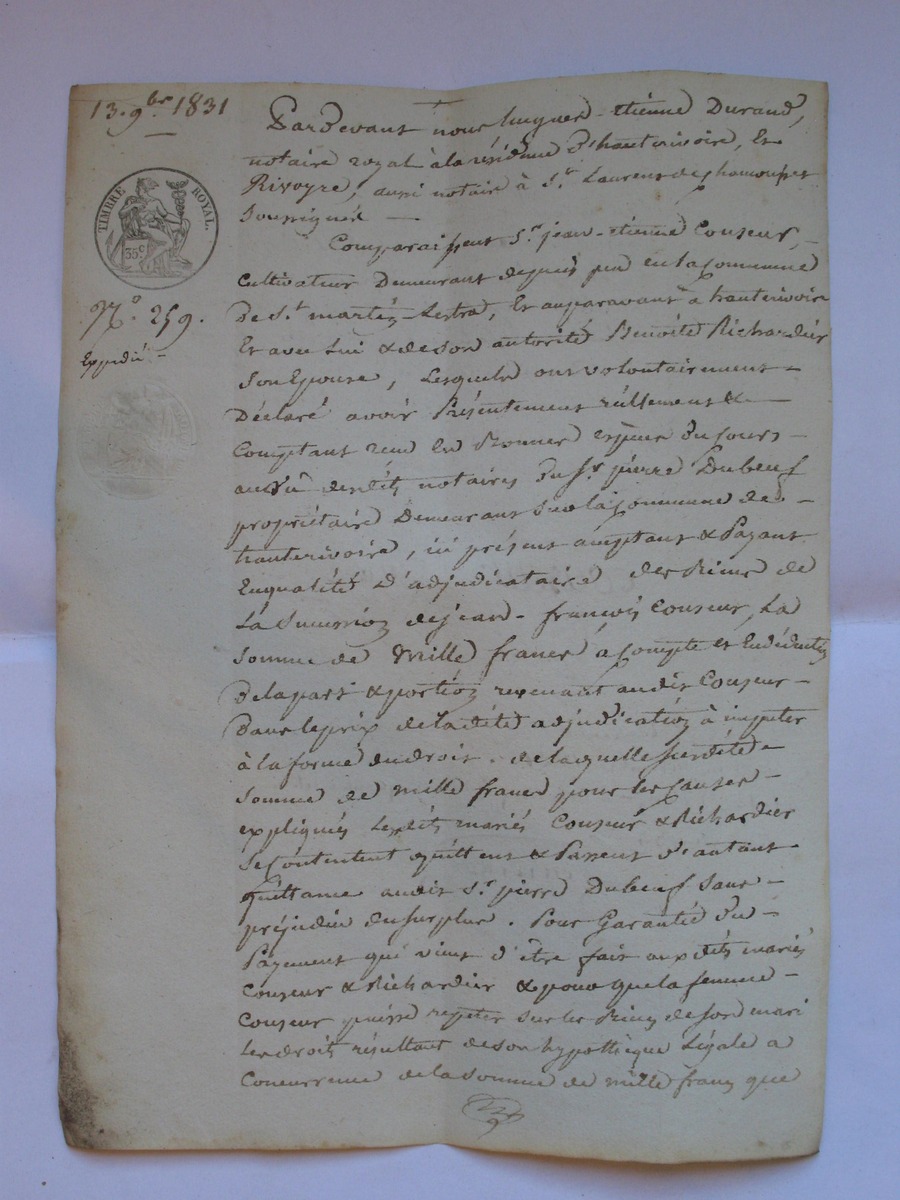 13. 9bre 1831
TIMBRE ROYAL.
35c
No. 259.
Expédié -
Pardevant nous hugues-étienne Durand,
notaire royal à la résidence d'hauterivoire, Et
Rivoyre, aussi notaire à St. Laurent de chamousset
soussignés —
Comparaissent Sr. jean-étienne Couzeur,
cultivateur Demeurant depuis peu en la Commune
De St. martin-Lestra, Et auparavant à hauterivoire
Et avec lui & de son autorité Benoite Richardier
Son Epouse, Lesquels ont volontairement
Déclaré avoir Présentement réellement &
Comptant recu En Bonnes espèces du Cours
au vû desdits notaires Du Sr. pierre Dubeuf
propriétaire Demeurant sur la Commune de
hauterivoire, ici présent acceptant & Payant
En qualité D'adjudicataire des Biens de
La Succession de jean-françois Couzeur, La
Somme de Mille francs à Compte et En déduction
De la part & portion revenant audit Couzeur
Dans le prix de la dite adjudication à imputer
à la forme du droit. de laquelle susdite
Somme de mille francs pour les Causes
expliqués Lesdits mariés Couzeur & Richardier
Se Contentent quittent & Passent D'autant
quittance audit Sr. pierre Dubeuf Sans
préjudice du surplus. Pour Garantie du
Payement qui vient d'être fait auxdits mariés
Couzeur & Richardier & pour que la femme
Couzeur puisse repeter sur les Biens de son mari
Les droits résultant de son hypothèque Légale a
Concurrence de la somme de mille francs que